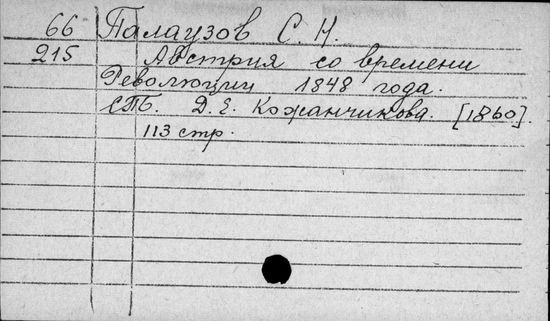 66 Палаузов С. Н.
215 Австрия со времени
Революции 1848 года.
СПб. Д. Е. Кожанчикова. [1860].
113 стр.